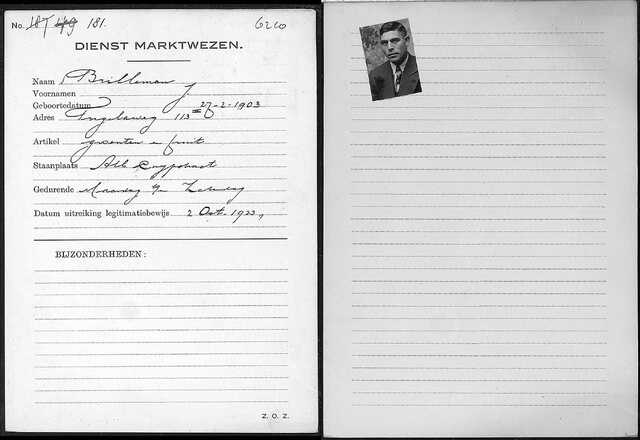 No. 187 49 181. 6200
DIENST MARKTWEZEN.
Naam Brilleman
Voornamen J
Geboortedatum 27-2-1903
Adres Engelsweg 113
Artikel groenten en fruit
Staanplaats Alb Cuypstraat
Gedurende Maandag t/m Zaterdag
Datum uitreiking legitimatiebewijs 2 Oct. 1922,
BIJZONDERHEDEN:
Z. O. Z.